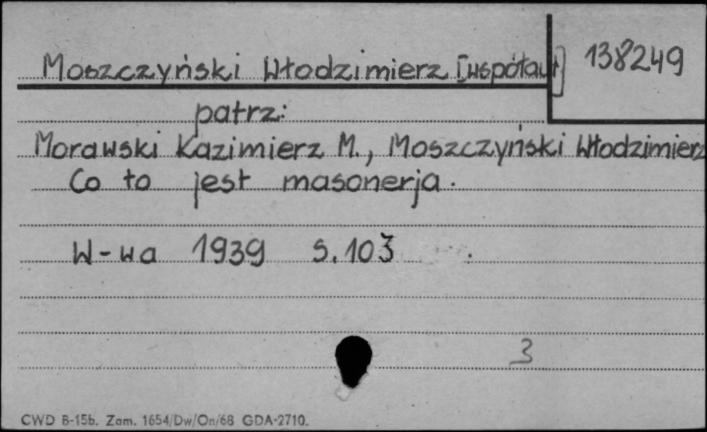 Moszczyński Włodzimierz [współaut]
138249
patrz:
Morawski Kazimierz M., Moszczyński Włodzimierz
Co to jest masonerja.
W-wa 1939 S. 103
3
CWD B-15b. Zam. 1654/Dw/On/68 GDA-2710.